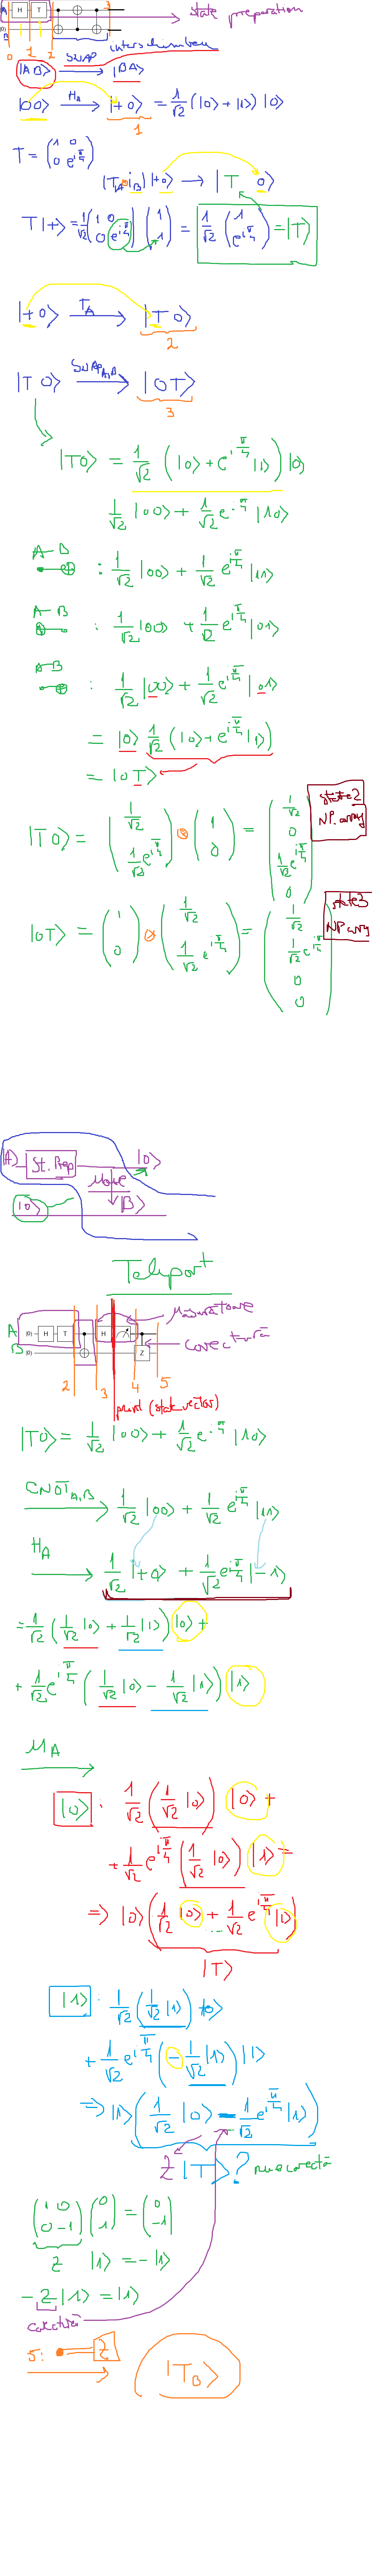 A |0⟩ H T → state preparation
B |0⟩
0 1 2 3
SWAP interschimbare
|AB⟩ → |BA⟩
|00⟩ H_A → |+0⟩ = 1/√2 (|0⟩ + |1⟩) |0⟩
1
T = (1 0
0 e^{iπ/4})
|T_A i_B| |+0⟩ → |T 0⟩
T|+⟩ = 1/√2 (1 0; 0 e^{iπ/4}) (1; 1) = 1/√2 (1; e^{iπ/4}) = |T⟩
|+0⟩ T_A → |T0⟩
2
|T 0⟩ SWAP_{A,B} → |0T⟩
3
|T0⟩ = 1/√2 (|0⟩ + e^{iπ/4} |1⟩) |0⟩
1/√2 |00⟩ + 1/√2 e^{iπ/4} |10⟩
A B : 1/√2 |00⟩ + 1/√2 e^{iπ/4} |11⟩
A B : 1/√2 |00⟩ + 1/√2 e^{iπ/4} |01⟩
A B : 1/√2 |00⟩ + 1/√2 e^{iπ/4} |01⟩
= |0⟩ 1/√2 (|0⟩ + e^{iπ/4} |1⟩)
= |0T⟩
|T0⟩ = (1/√2; 1/√2 e^{iπ/4}) ⊗ (1; 0) = (1/√2; 0; 1/√2 e^{iπ/4}; 0) state2 NP.array
|0T⟩ = (1; 0) ⊗ (1/√2; 1/√2 e^{iπ/4}) = (1/√2; 1/√2 e^{iπ/4}; 0; 0) state3 NP array
|A⟩ St. Prep |0⟩
Move
|0⟩ |B⟩
Teleport
Măsurătoare
A |0⟩ H T H
B |0⟩ Z corectură
2 3 4 5
print (state vector)
|T0⟩ = 1/√2 |00⟩ + 1/√2 e^{iπ/4} |10⟩
CNOT_{A,B} → 1/√2 |00⟩ + 1/√2 e^{iπ/4} |11⟩
H_A → 1/√2 |+0⟩ + 1/√2 e^{iπ/4} |-1⟩
= 1/√2 (1/√2 |0⟩ + 1/√2 |1⟩) |0⟩ +
+ 1/√2 e^{iπ/4} (1/√2 |0⟩ - 1/√2 |1⟩) |1⟩
M_A →
|0⟩ : 1/√2 (1/√2 |0⟩) |0⟩ +
+ 1/√2 e^{iπ/4} (1/√2 |0⟩) |1⟩ =
=> |0⟩ (1/√2 |0⟩ + 1/√2 e^{iπ/4} |1⟩)
|T⟩
|1⟩ : 1/√2 (1/√2 |1⟩) |0⟩
+ 1/√2 e^{iπ/4} (-1/√2 |1⟩) |1⟩
=> |1⟩ (1/√2 |0⟩ - 1/√2 e^{iπ/4} |1⟩)
Z |T⟩ ?
(1 0; 0 -1) (0; 1) = (0; -1)
Z |1⟩ = -|1⟩
- Z |1⟩ = |1⟩
5: Z → |T_B⟩